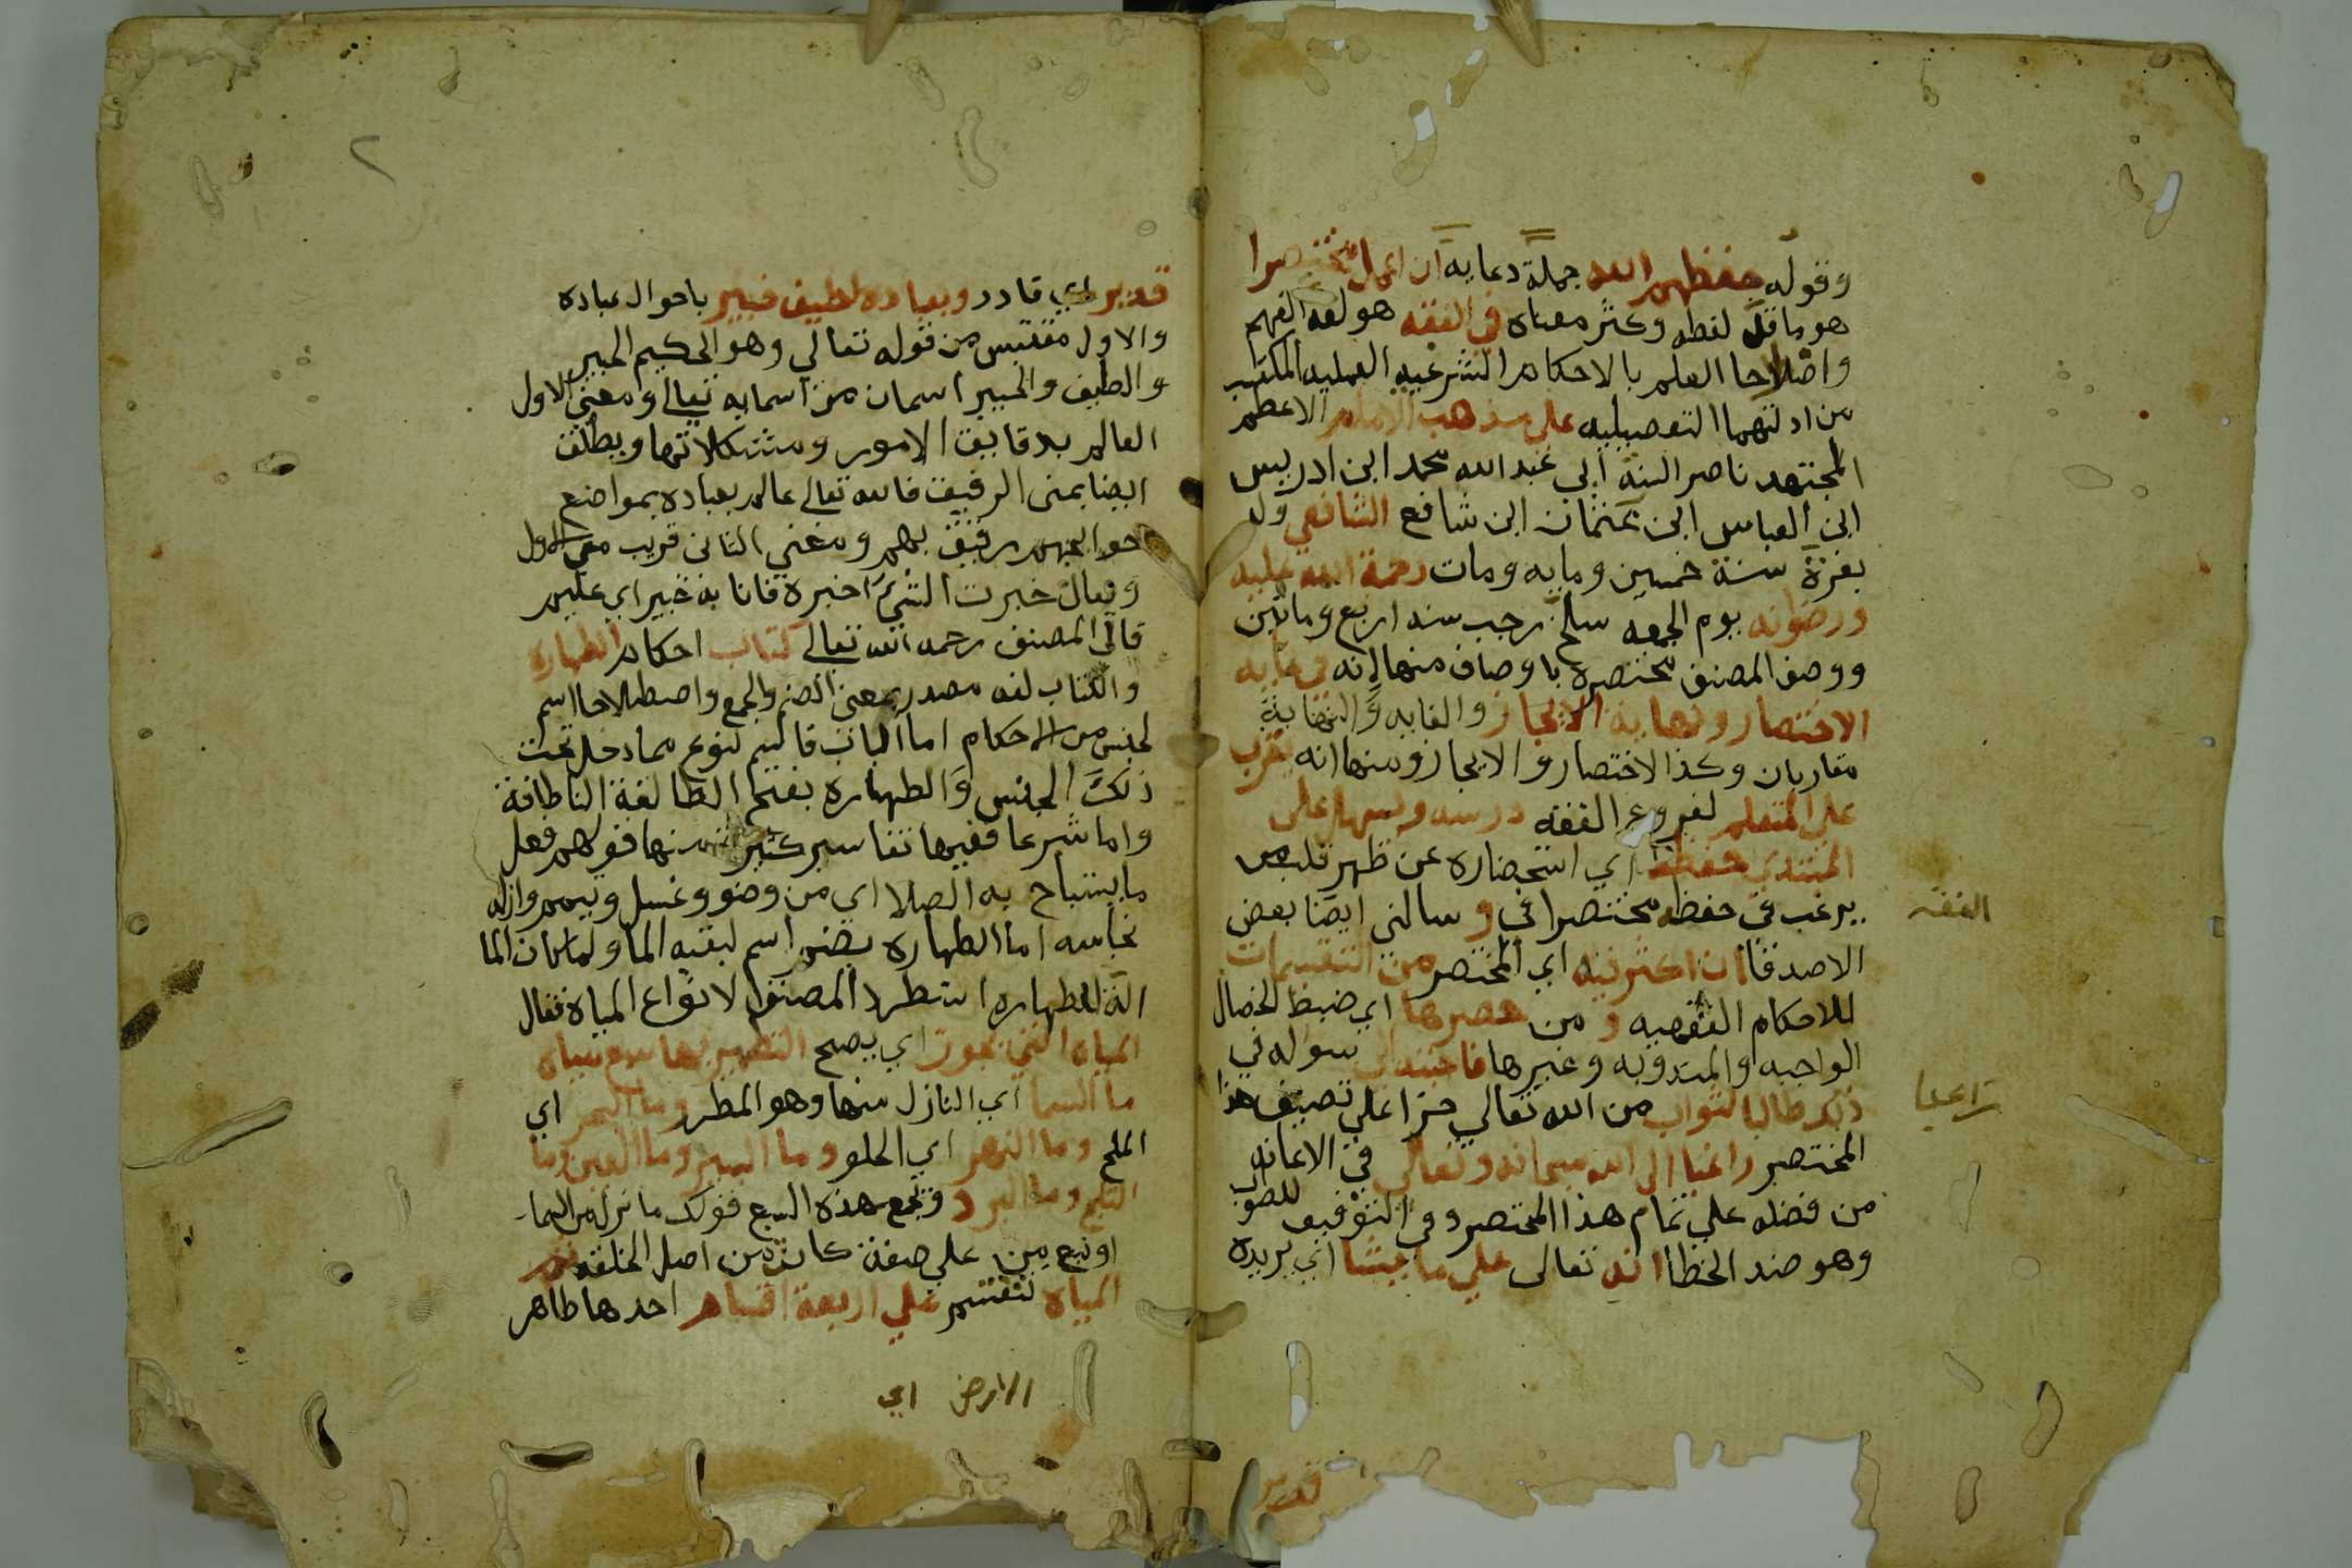 وقوله حفظهم الله جملة دعايه ان اعمل مختصرا
هو ما قل لفظه وكثر معناه في الفقه هو لغه الفهم
واصلاحا العلم بالاحكام الشرعيه العمليه المكتسب
من ادلتهما التفصيليه على مذهب الامام الاعظم
المجتهد ناصر السنه ابي عبد الله محمد ابن ادريس
ابن العباس ابن عثمان ابن شافع الشافعي ولد
بغزة سنة خمسين ومايه ومات رحمة الله عليه
ورضوانه يوم الجمعه سلخ رجب سنه اربع وماتين
ووصف المصنف مختصره باوصاف منها انه في غايه
الاختصار ونهاية الايجاز والغايه والنهاية
متقاربان وكذا الاختصار والايجاز ومنها انه يقرب
على المتعلم لفروع الفقه درسه ويسهل على
المبتدي حفظه اي استحضاره عن ظهر قلب من
يرغب في حفظ مختصرا في و سالني ايضا بعض
الاصدقا ان اكثر فيه اي المختصر من التقسيمات
للاحكام الفقهيه و من حصرها اي ضبط الخصال
الواجبه والمندوبه وغيرها فاجبته الى سواله في
ذلك طالبا للثواب من الله تعالي جزا علي تصنيف هذا
المختصر راغبا الى الله سبحانه وتعالى في الاعانه
من فضله علي تمام هذا المختصر وفي التوفيق للصواب
وهو ضد الخطا انه تعالى علي ما يشا اي يريده
الفقه
قدير
قدير اي قادر وبعباده لطيف خبير باحوال عباده
والاول مقتبس من قوله تعالي وهو الحكيم الخبير
والطيف والخبير اسمان من اسمايه تعالى ومعني الاول
العالم بدقايق الامور ومشكلاتها ويطلق
ايضا بمعنى الرفيق فالله تعالى عالم بعباده بمواضع
حوايجهم رفيق بهم ومعني الثاني قريب من معنى الاول
ويقال خبرت الشيء اخبره فانا به خبير اي عليم
قال المصنف رحمه الله تعالى كتاب احكام الطهاره
والكتاب لغه مصدر بمعنى الضم والجمع واصطلاحا اسم
لجنس من الاحكام اما الباب فاسم لنوع مما دخل تحت
ذلك الجنس والطهاره بفتح الطا لغة الناظافة
واما شرعا ففيها تفاسير كثيره منها قولهم فعل
ما يستباح به الصلا اي من وضو وغسل وتيمم وازاله
نجاسه اما الطهاره بضم اسم لبقيه الما ولما كان الما
الة للطهاره استطرد المصنف لانواع المياه فقال
المياه التي يجوز اي يصح التطهير بها سبع مياه
ما السما اي النازل منها وهو المطر وما البحر اي
الملح وما النهر اي الحلو وما البير وما العين وما
الثلج وما البرد ويجمع هذه السبع قولك ما نزل من السما
او نبع من علي صفة كانت من اصل الخلقه ثم
المياه تنقسم علي اربعة اقسام احدها طاهر
الارض اي
٢